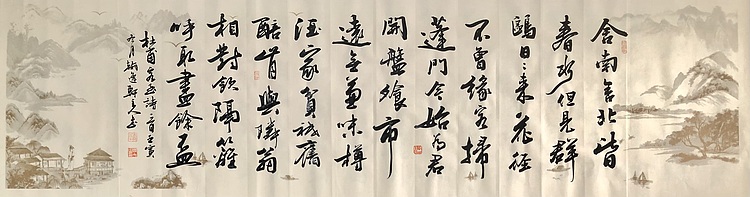 舍南舍北皆
春水但見群
鷗日々来花径
不曾緣客掃
蓬門今始為君
開盤飧市
遠無兼味樽
酒家貧祇舊
醅肯與隣翁
相對飲隔籬
呼取盡餘盃
杜甫客至詩一首壬寅
冬月